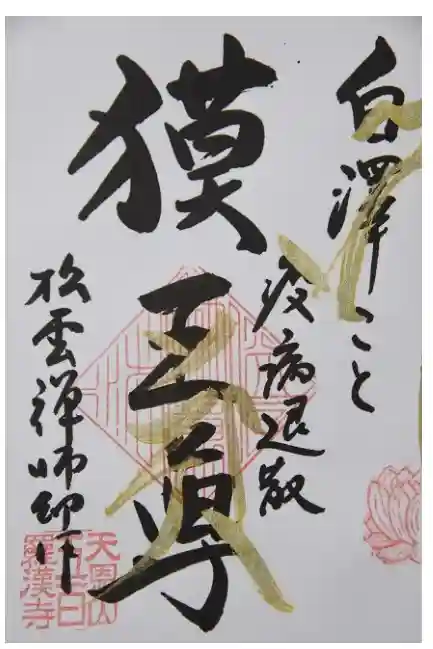 白澤こと
疫病退散
獏王尊
松雲禅師御作
天恩山
五百
羅漢寺